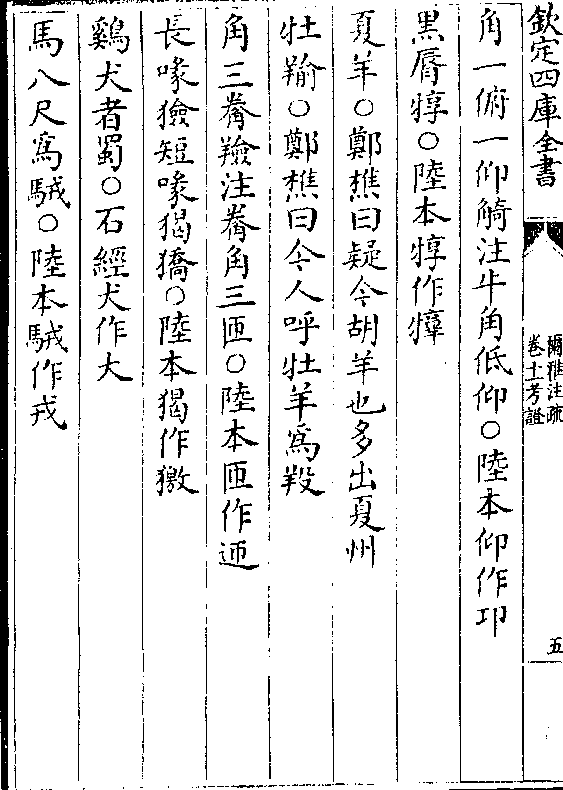 欽定四庫全書
爾雅注疏
卷十一考證
五
角一俯一仰觭注牛角低仰○陸本仰作卭
黑脣犉○陸本犉作㹔
夏羊○鄭樵曰疑今胡羊也多出夏州
牡羭○鄭樵曰今人呼牡羊為羖
角三觠羷注觠角三匝○陸本匝作迊
長喙獫短喙猲獢○陸本猲作獥
鷄犬者蜀○石經犬作大
馬八尺為駥○陸本駥作戎